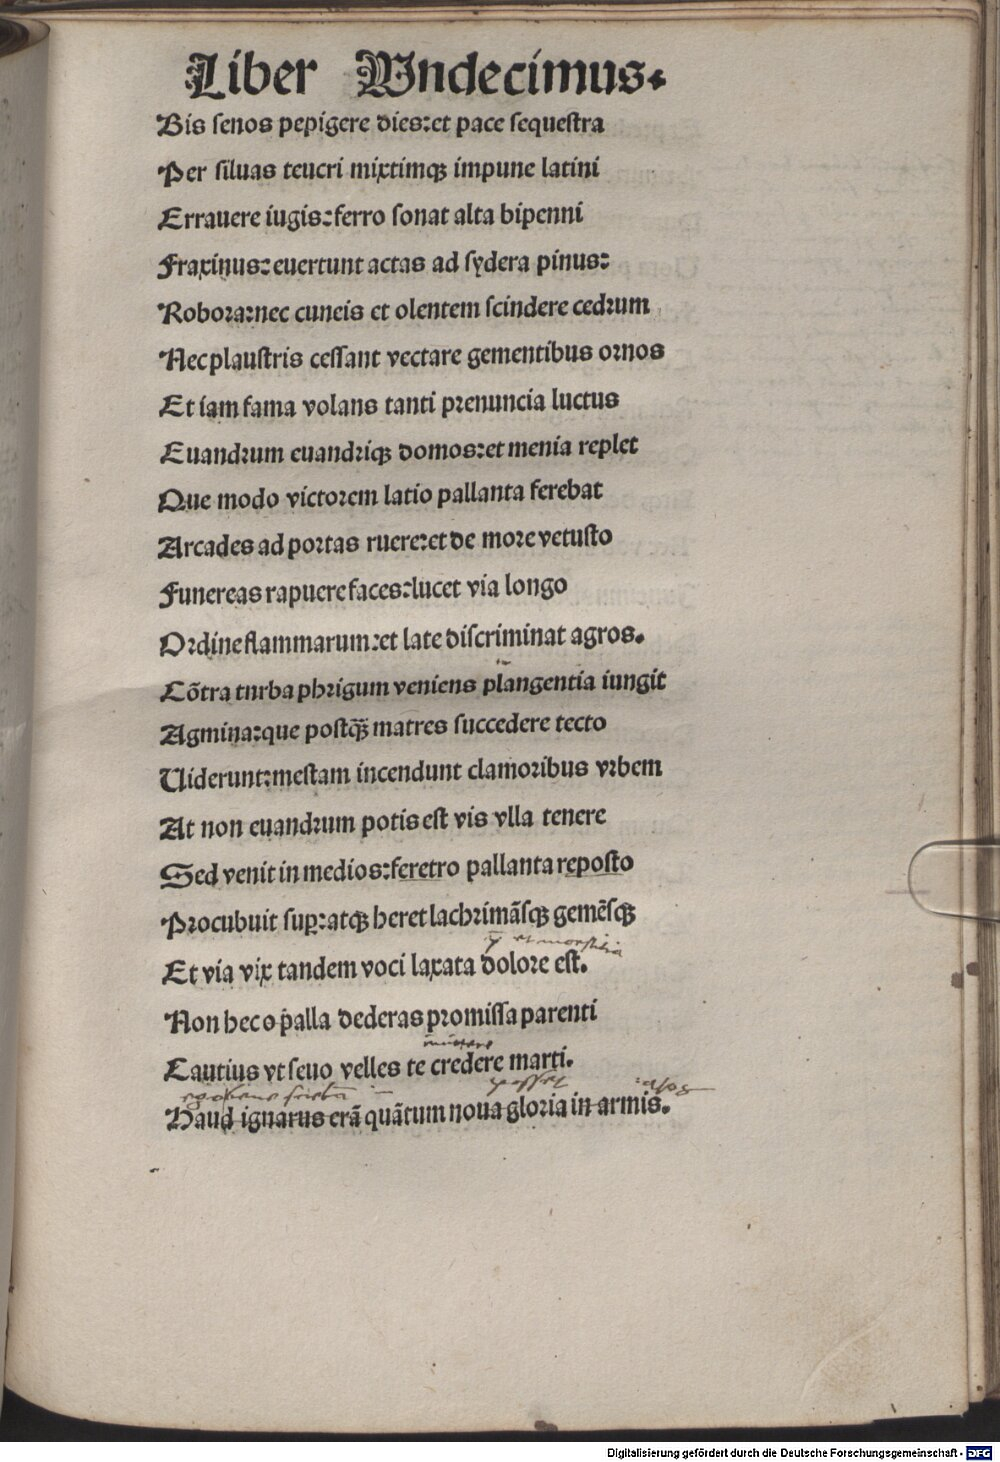 Liber Vndecimus.
Bis ſenos pepigere dies:et pace ſequeſtra
Per ſiluas teucri mixtimqꝫ impune latini
Errauere iugis:ferro ſonat alta bipenni
Fraxinus:euertunt actas ad ſydera pinus:
Robora:nec cuneis et olentem ſcindere cedrum
Nec plauſtris ceſſant vectare gementibus ornos
Et iam fama volans tanti prenuncia luctus
Euandrum euandriqꝫ domos:et menia replet
Que modo victorem latio pallanta ferebat
Arcades ad portas ruere:et de more vetuſto
Funereas rapuere faces:lucet via longo
Ordine flammarum:et late diſcriminat agros.
Cõtra turba phrigum veniens plangentia iungit
Agmina:que poſtq̃ matres ſuccedere tecto
Uiderunt:meſtam incendunt clamoribus vrbem
At non euandrum potis eſt vis vlla tenere
Sed venit in medios:feretro pallanta repoſto
Procubuit ſuꝑ:atqꝫ heret lachrimãſqꝫ gemẽſqꝫ
Et via vix tandem voci laxata dolore eſt.
Non hec o palla dederas promiſſa parenti
Cautius vt ſeuo velles te credere marti.
Haud ignarus erã quãtum noua gloria in armis.
Digitalisierung gefördert durch die Deutsche Forschungsgemeinschaft - DFG